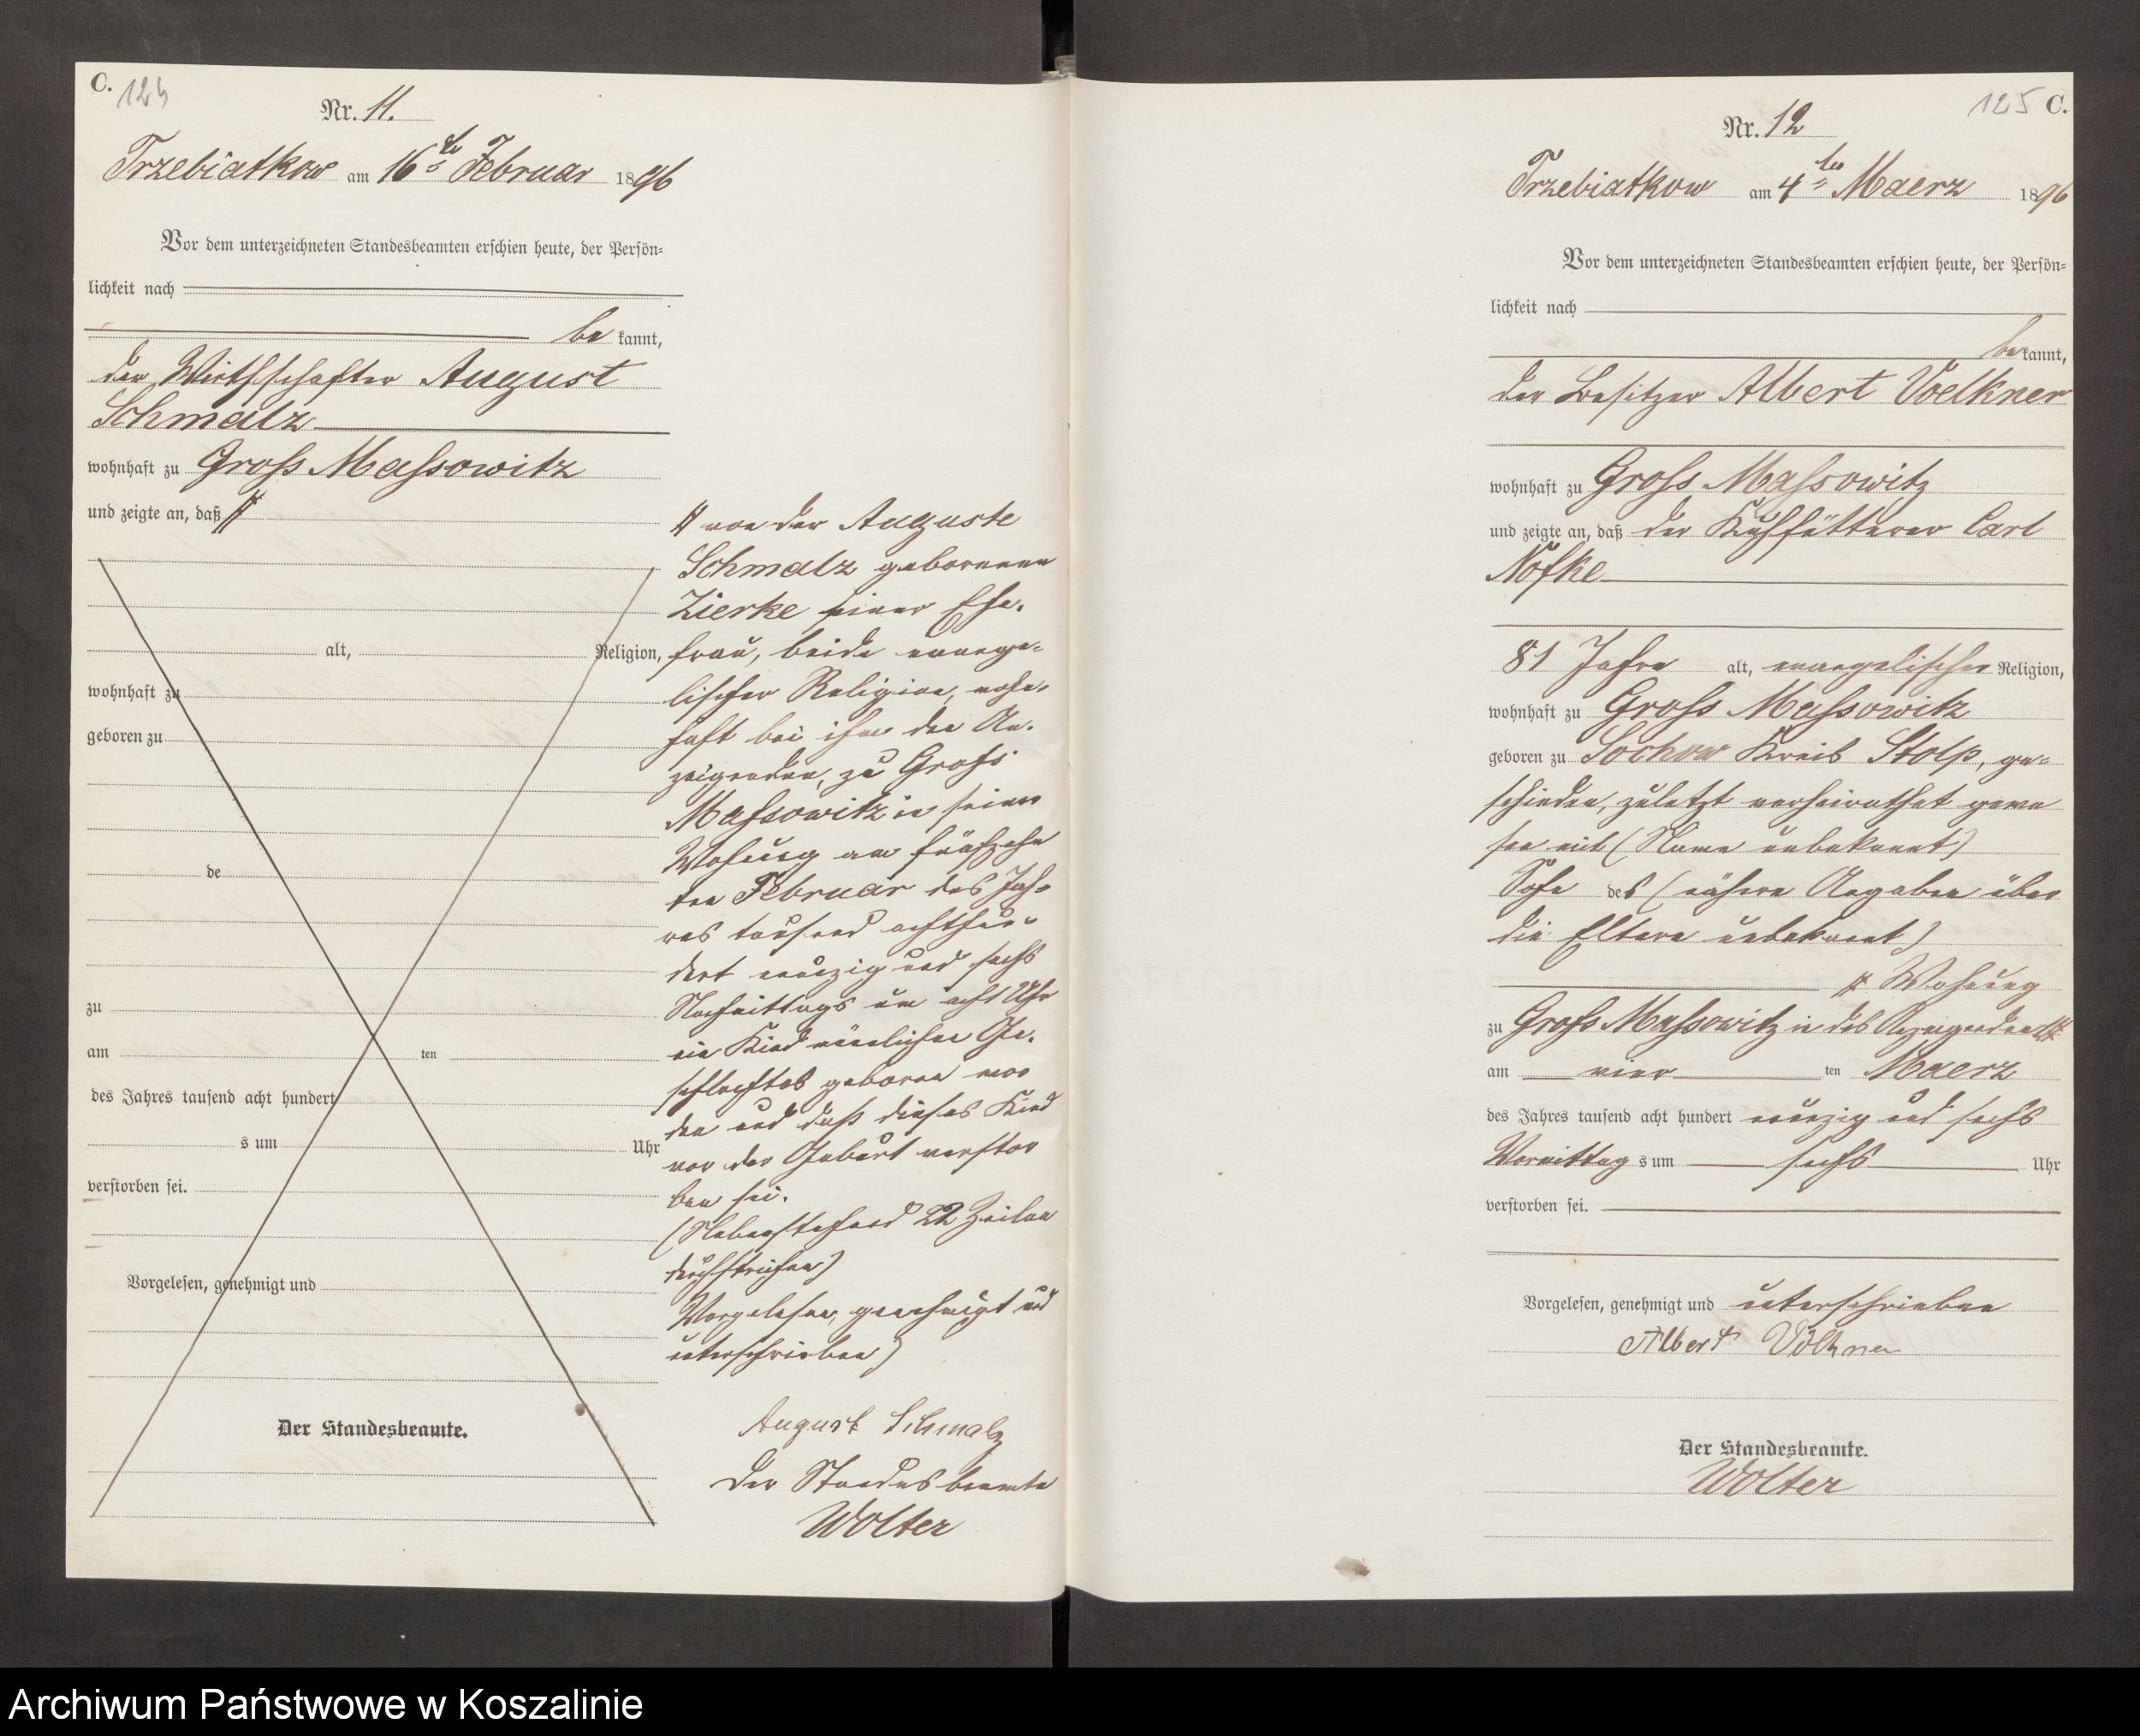 C. 124
Nr. 11.
Trzebiatkow am 16ten Februar 1896
Vor dem unterzeichneten Standesbeamten erschien heute, der Persön=
lichkeit nach
be kannt,
der Wirthschafter August
Schmalz
wohnhaft zu Gross Massowitz
und zeigte an, daß #
alt, Religion,
wohnhaft zu
geboren zu
de
zu
am ten
des Jahres tausend acht hundert
s um Uhr
verstorben sei.
Vorgelesen, genehmigt und
Der Standesbeamte.
# von der Auguste
Schmalz geborenen
Zierke seiner Ehe-
frau, beide evange-
lischer Religion, wohn-
haft bei ihm den An-
zeigenden, zu Gross
Massowitz in seiner
Wohnung am fünfzehn
ten Februar des Jah-
res tausend achthun-
dert neunzig und sechs
Nachmittags um acht Uhr
ein Kind männlichen Ge-
schlechtes geboren wor
den und daß dieses Kind
vor der Geburt verstor
ben sei.
(Nebenstehend 22 Zeilen
durchstrichen)
Vorgelesen, genehmigt und
unterschrieben)
August Schmalz
Der Standesbeamte
Wolter
125 C.
Nr. 12
Trzebiatkow am 4ten Maerz 1896
Vor dem unterzeichneten Standesbeamten erschien heute, der Persön=
lichkeit nach
be kannt,
der Besitzer Albert Voelkner
wohnhaft zu Gross Massowitz
und zeigte an, daß der Kuhfütterer Carl
Nofke
81 Jahre alt, evangelischer Religion,
wohnhaft zu Gross Massowitz
geboren zu Sochow Kreis Stolp, ge-
schieden, zuletzt verheirathet gewe
sen mit (Name unbekannt)
Sohn des (nähere Angaben über
die Eltern unbekannt)
# Wohnung
zu Gross Massowitz in des Anzeigenden #
am vier ten Maerz
des Jahres tausend acht hundert neunzig und sechs
Vormittag s um sechs Uhr
verstorben sei.
Vorgelesen, genehmigt und unterschrieben
Albert Völkner
Der Standesbeamte.
Wolter
Archiwum Państwowe w Koszalinie